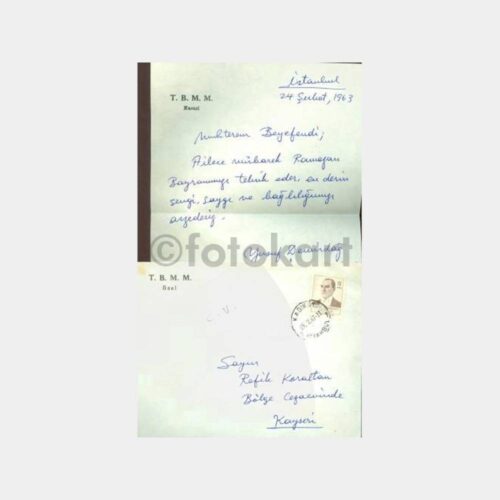 İstanbul
24 Şubat, 1963
T. B. M. M.
Muhterem Beyefendi;
Ailece mübarek Ramazan
Bayramınızı tebrik eder, en derin
sevgi, saygı ve bağlılığımızı
arzederiz.
©fotokart
Yusuf Demirdağ
T. B. M. M.
Özel
C. V.
KADIKÖY
Sayın
Refik Koraltan
Bölge Cezaevinde
Kayseri